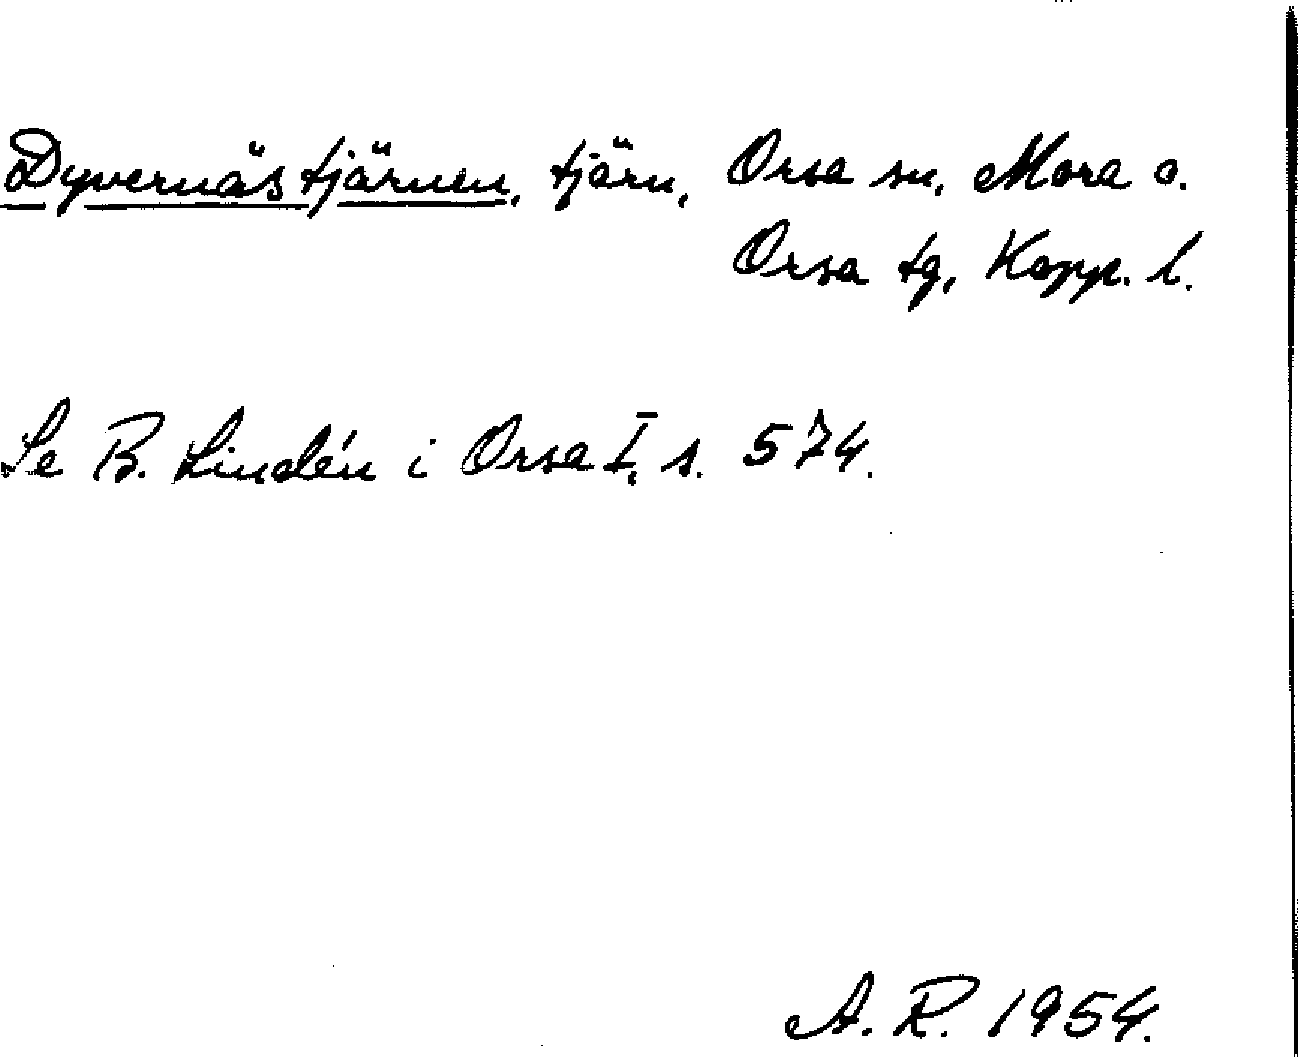 Dyvernästjärnen, tjärn, Orsa sn, Mora o.
Orsa tg, Kopp. l.
Se B. Lindén i Orsa I, s. 574.
A. R. 1954.